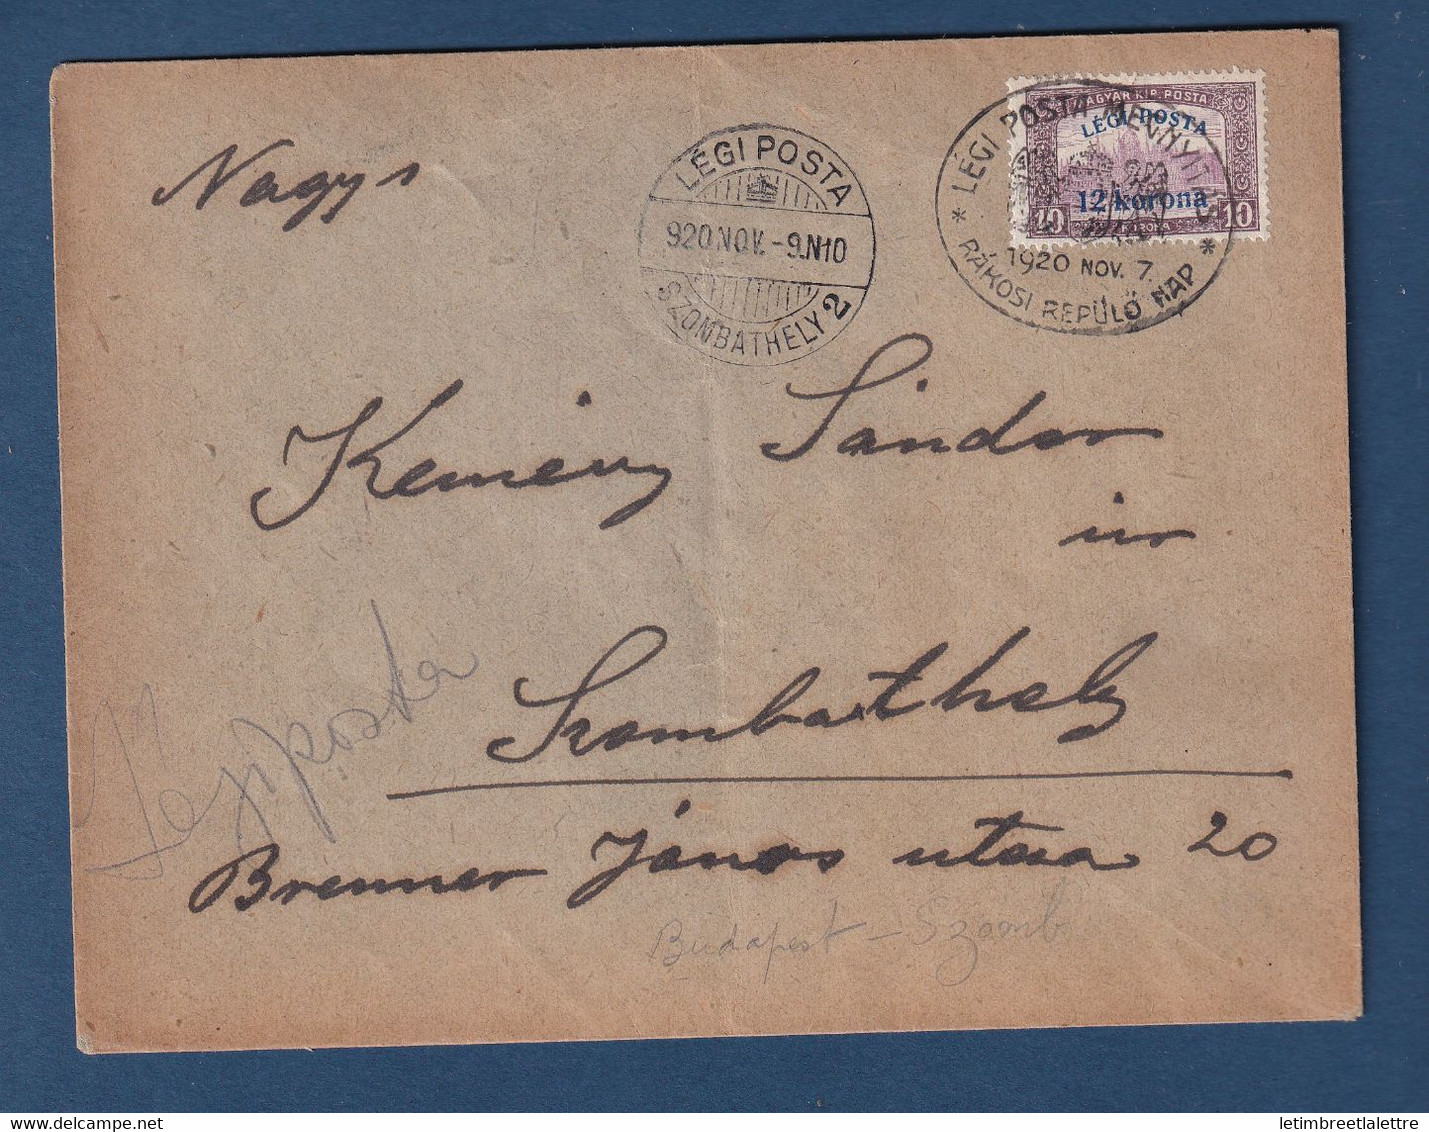 MAGYAR KIR. POSTA
LÉGI POSTA
12 korona
10 10
LÉGI POSTA MEGNYITÁS
1920 NOV. 7.
* RÁKOSI REPÜLŐ NAP *
LÉGI POSTA
920.NOV.-9.N10
SZOMBATHELY 2
Kemény Sándor
úr
Szombathely
Légiposta
Brenner János utca 20
Budapest - Szomb
letimbreetlalettre.com